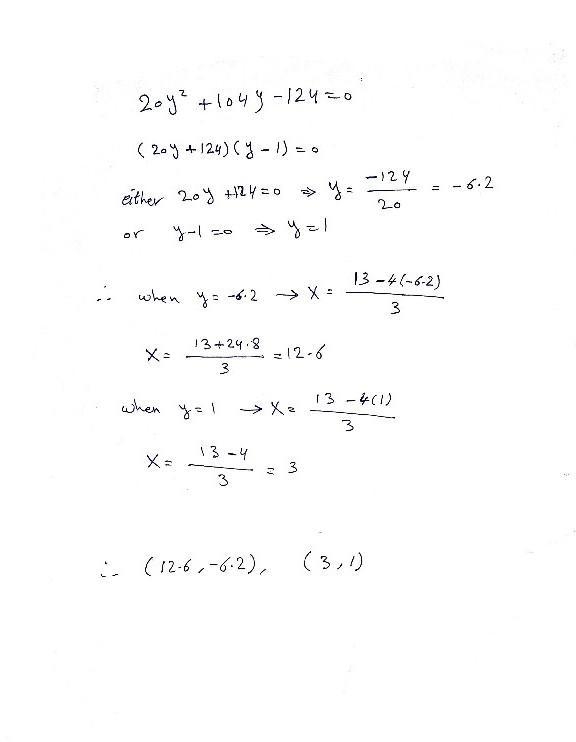 20y² + 104y - 124 = 0
(20y + 124)(y - 1) = 0
either 20y + 124 = 0 ⇒ y = -124/20 = -6.2
or y - 1 = 0 ⇒ y = 1
∴ when y = -6.2 → x = (13 - 4(-6.2))/3
x = (13 + 24.8)/3 = 12.6
when y = 1 → x = (13 - 4(1))/3
x = (13 - 4)/3 = 3
∴ (12.6, -6.2), (3, 1)